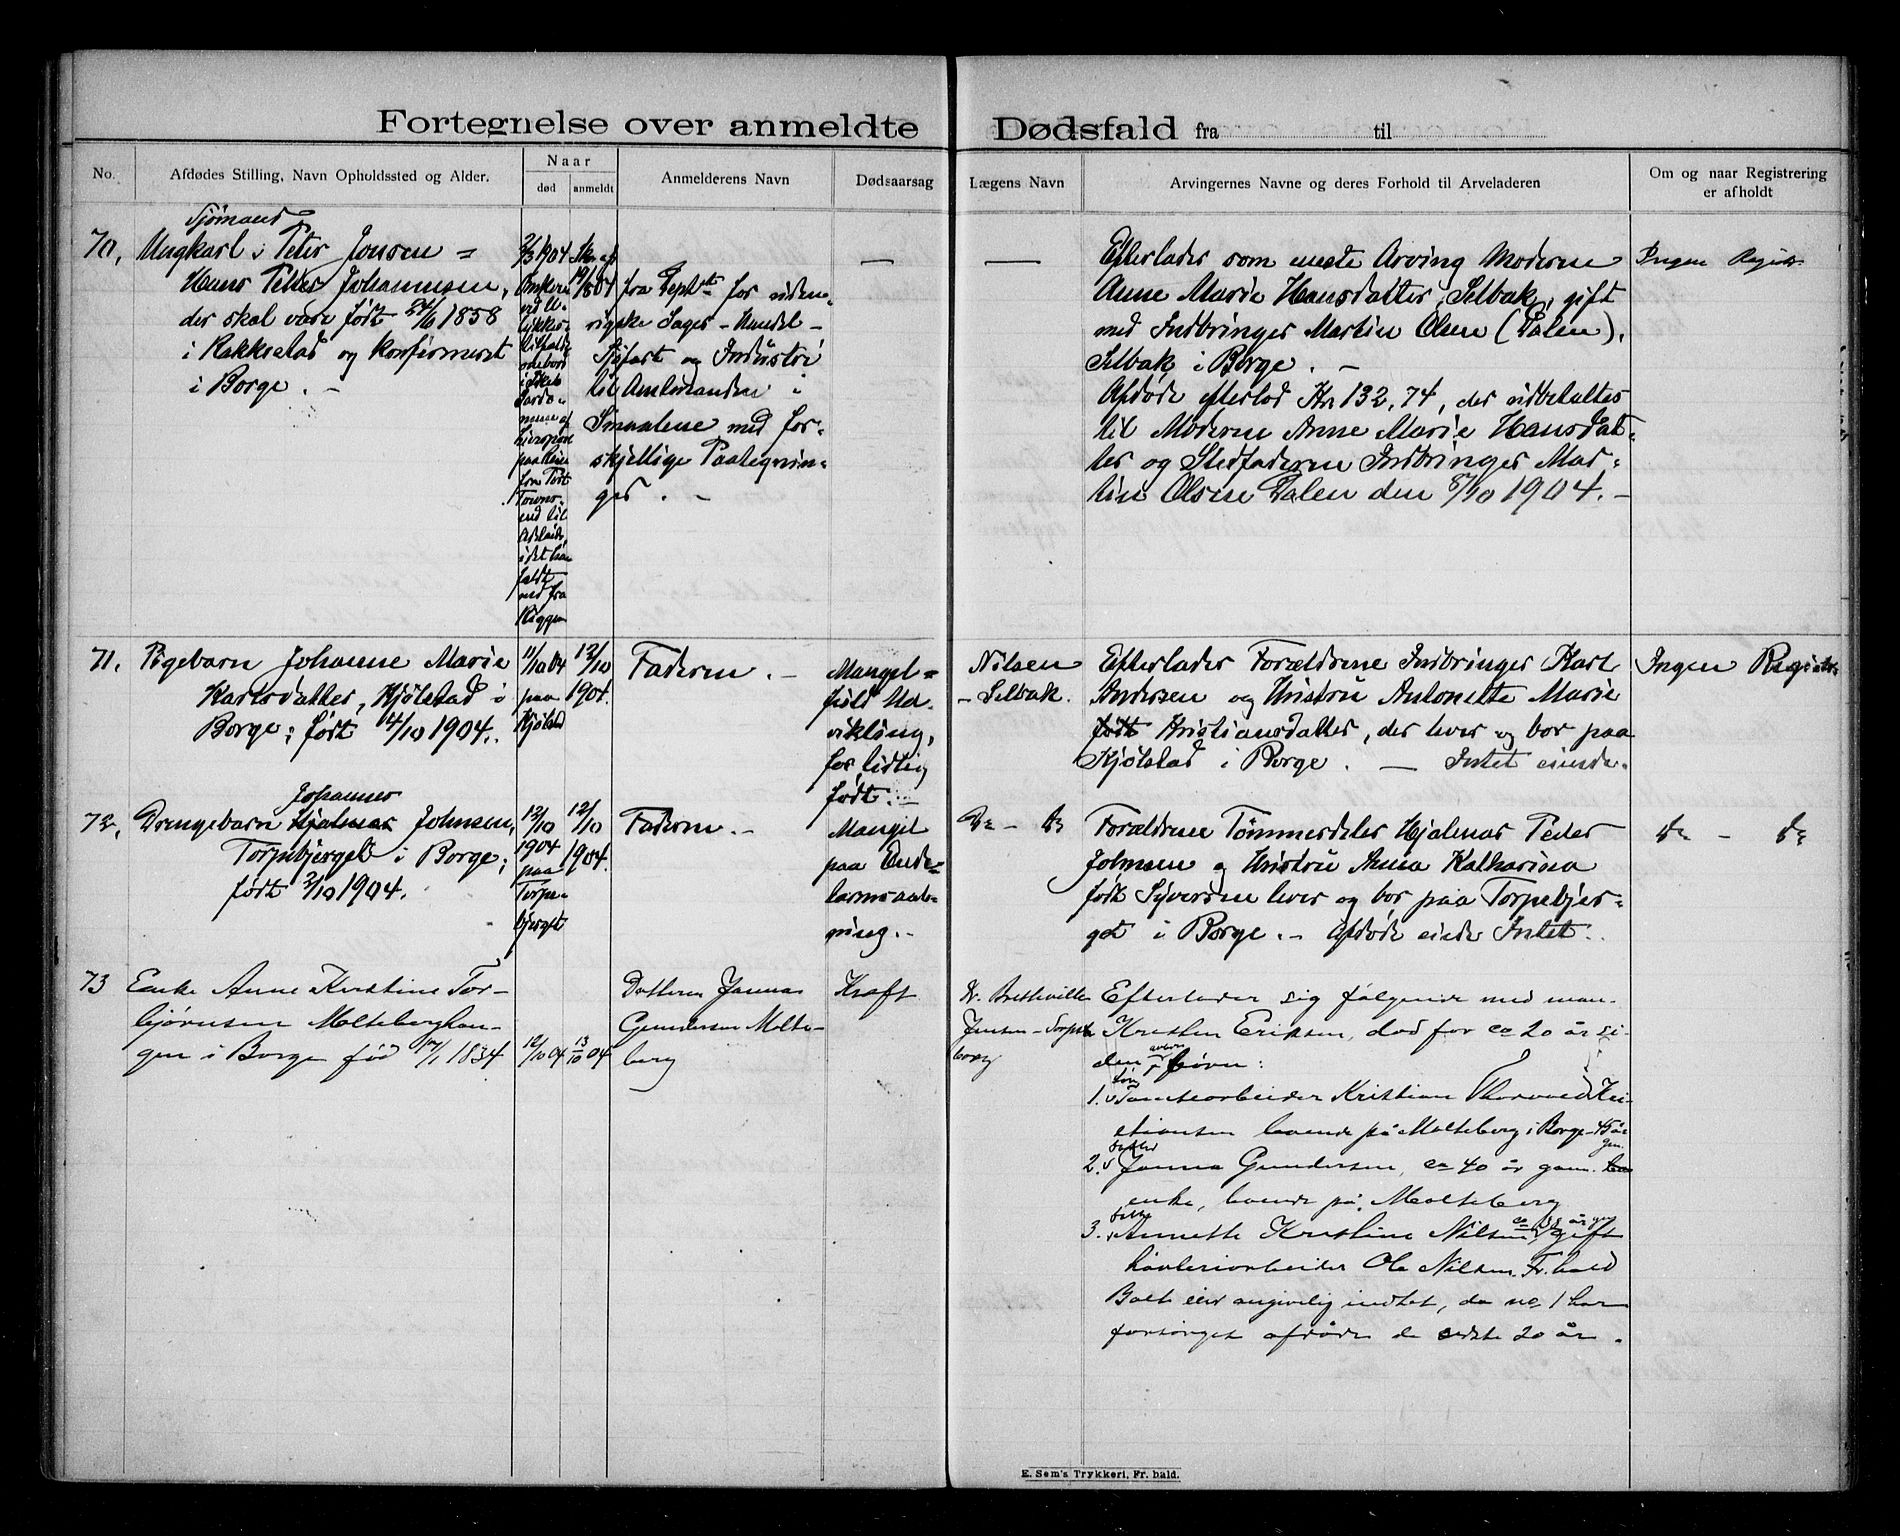 Fortegnelse over anmeldte Dødsfald fra til
No.
Afdødes Stilling, Navn Opholdssted og Alder.
Naar
død
anmeldt
Anmelderens Navn
Dødsaarsag
Lægens Navn
Arvingernes Navne og deres Forhold til Arveladeren
Om og naar Registrering
er afholdt
70,
Sjømand
Ungkarl Peter Jonsen =
Hans Petter Johannesen,
der skal være født 24/6 1858
i Rakkestad og konfirmeret
i Borge. -
2/3 1904
Omkom
ved U-
lykkes-
tilfælde
ombord
i Skib
af
Liverpool
paa Reise
fra Port
Towns-
end til
Adelaide,
idet
faldt
ned fra
Riggen
19/8 04
fra Deptt for uden-
rigske Sager - Handel -
Sjøfart og Industri
til Amtmanden i
Smaalene med for-
skjellige Paategnin-
ger. -
—
—
Efterlader som eneste Arving Moderen
Anne Marie Hansdatter, Selbak, gift
med Indbringer Martin Olsen (Dalen),
Selbak i Borge. -
Afdøde efterlod Kr 132,74, der udbetaltes
til Moderen Anne Marie Hansdat-
ter og Stedfaderen Indbringer Mar-
tin Olsen Dalen den 8/10 1904. -
Ingen Registr.
71.
Pigebarn Johanne Marie
Karlsdatter, Kjølstad i
Borge; født 4/10 1904.
11/10 04
paa
Kjølstad
12/10
1904.
Faderen. -
Mangel-
fuld Ud-
vikling,
for tidlig
født. -
Nilsen
- Selbak.
Efterlader Forældrene Indbringer Karl
Andersen og Hustru Antonette Marie
født Kristiansdatter, der lever og bor paa
Kjølstad i Borge. — Intet eiende.
Ingen Registr.
72,
Johannes
Drengebarn Hjalmar Johnsen,
Torpebjerget i Borge;
født 2/10 1904.
12/10
1904
paa
Torpe-
bjerget
12/10
1904.
Faderen. -
Mangel
paa Ende-
tarmsaab-
ning. -
Do - Do
Forældrene Tømmerdeler Hjalmar Peder
Johnsen og Hustru Anna Katharina
født Syversen lever og bor paa Torpebjer-
get i Borge. - Afdøde eiede Intet.
Do - Do
73
Enke Anne Kristine Tor-
bjørnsen Molteberghau-
gen i Borge fød 1834
12/10 04
13/10 04
Datteren Janna
Gundersen Molte-
berg
Kræft
Dr. Bretteville
Jensen - Sarps-
borg
Efterlader sig følgende med man-
Kristen Eriksen, død for ca 20 år si-
den børn:
Søn
1. Tomtearbeider Kristian Thorvald Kri-
stiansen boende på Molteberg i Borge - 45 år
gm.
Datter
2. Janna Gundersen, ca 40 år gam.
enke, boende på Molteberg
Datter
3. Annette Kristine Nilsen, gift
høvleriarbeider Ole Nilsen Fr.hald
Boet eier angivelig indtet, da no 1 har
forsørget afdøde de sidste 20 år.
E. Sem's Trykkeri, Fr.hald.